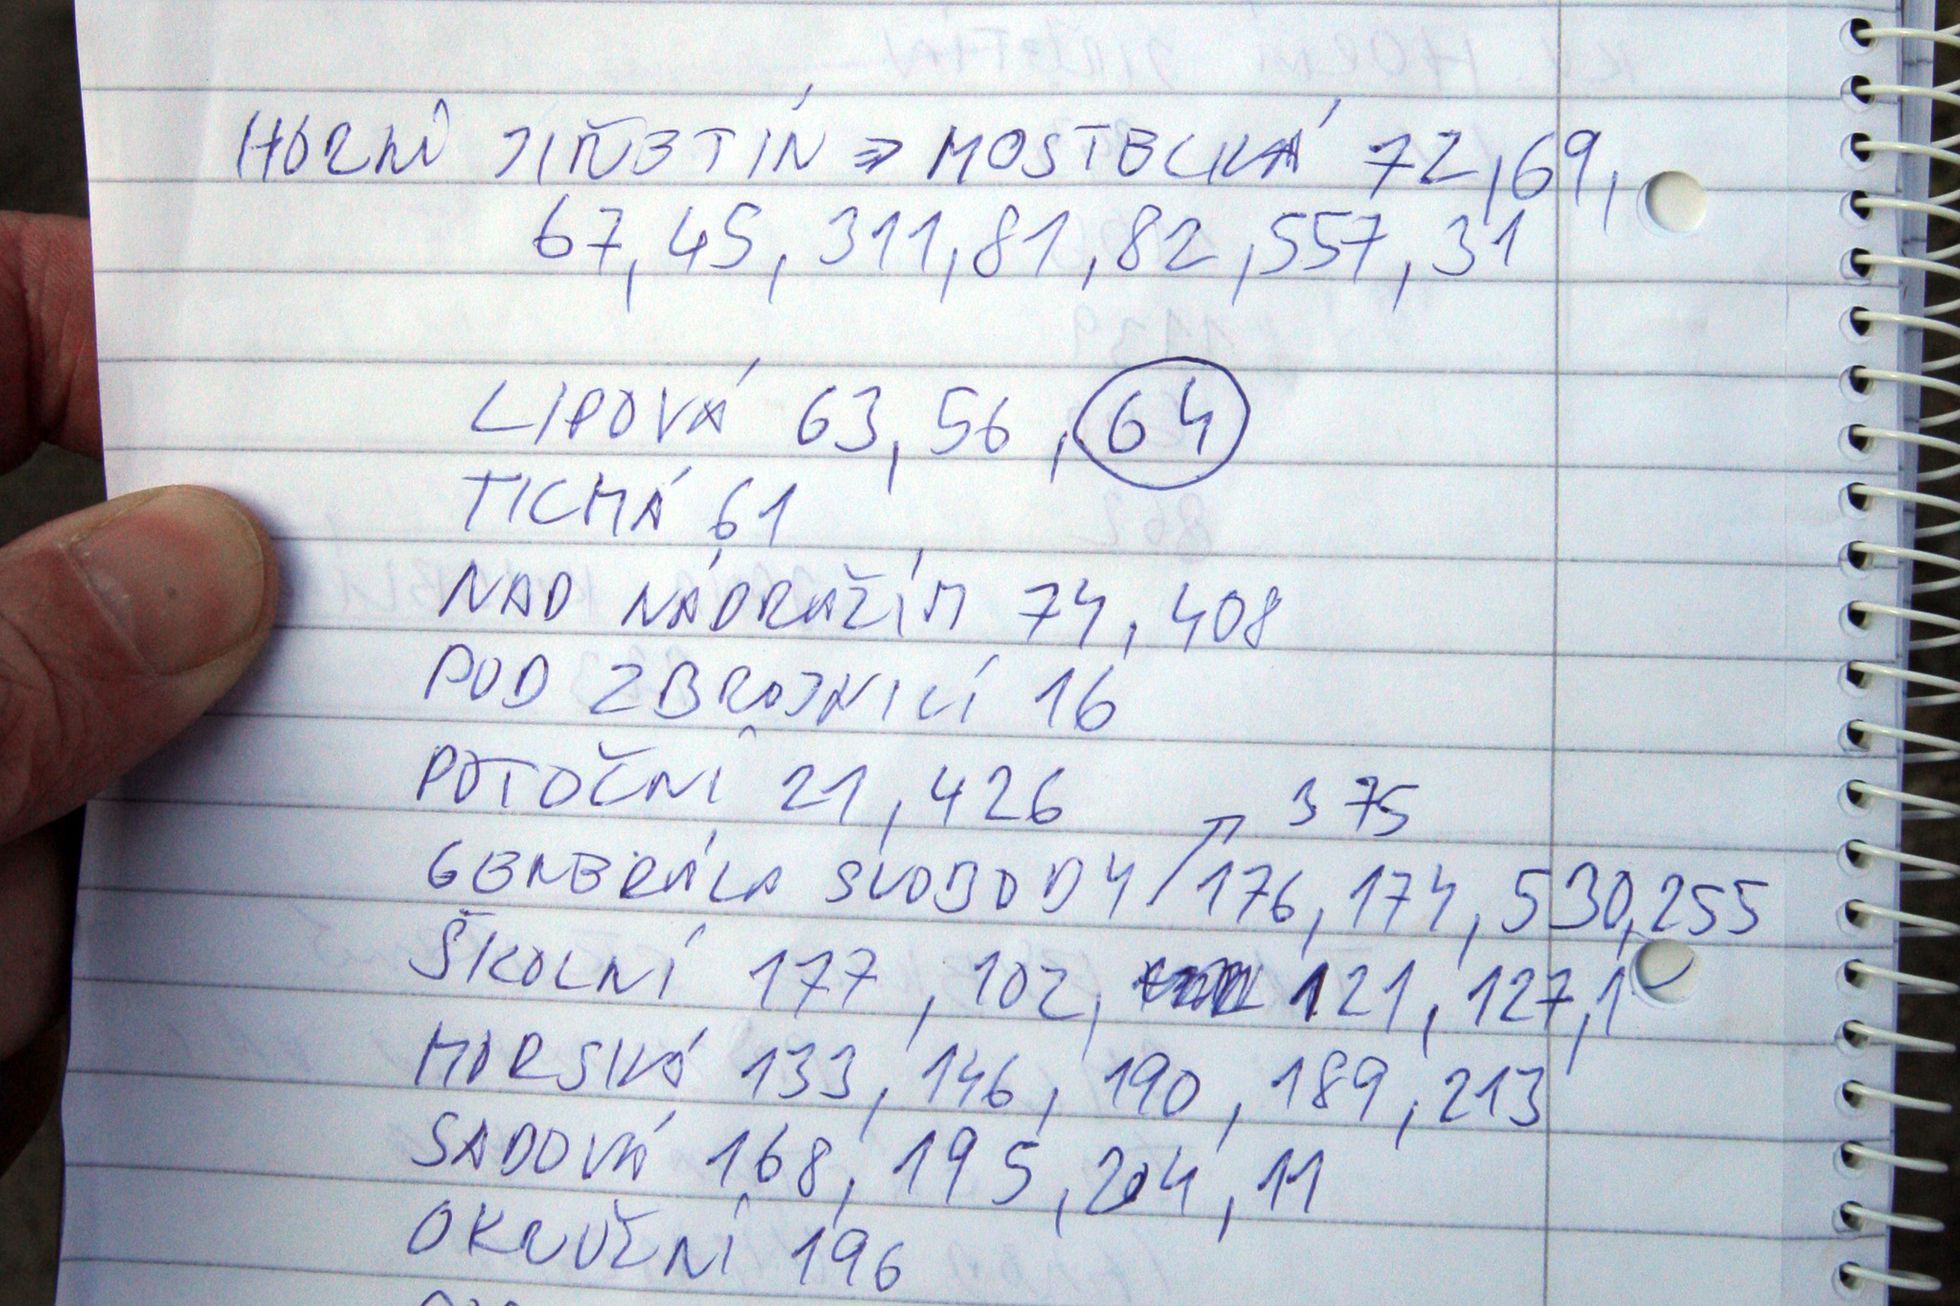 HORNÍ JIŘETÍN => MOSTECKÁ 72, 69,
67, 45, 311, 81, 82, 557, 31
LIPOVÁ 63, 56, 64
TICHÁ 61
NAD NÁDRAŽÍM 74, 408
POD ZBROJNICÍ 16
POTOČNÍ 21, 426
375
GENERÁLA SVOBODY 176, 174, 530, 255
ŠKOLNÍ 177, 102, 121, 127, 1
HORSKÁ 133, 146, 190, 189, 213
SADOVÁ 168, 195, 204, 11
OKRUŽNÍ 196